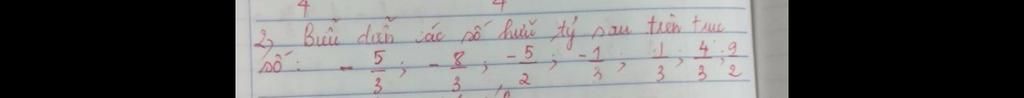 2, Biểu diễn các số hữu tỷ sau trên trục
số: - 5/3 ; - 8/3 ; -5/2 ; -1/3 ; 1/3 ; 4/3 ; 9/2